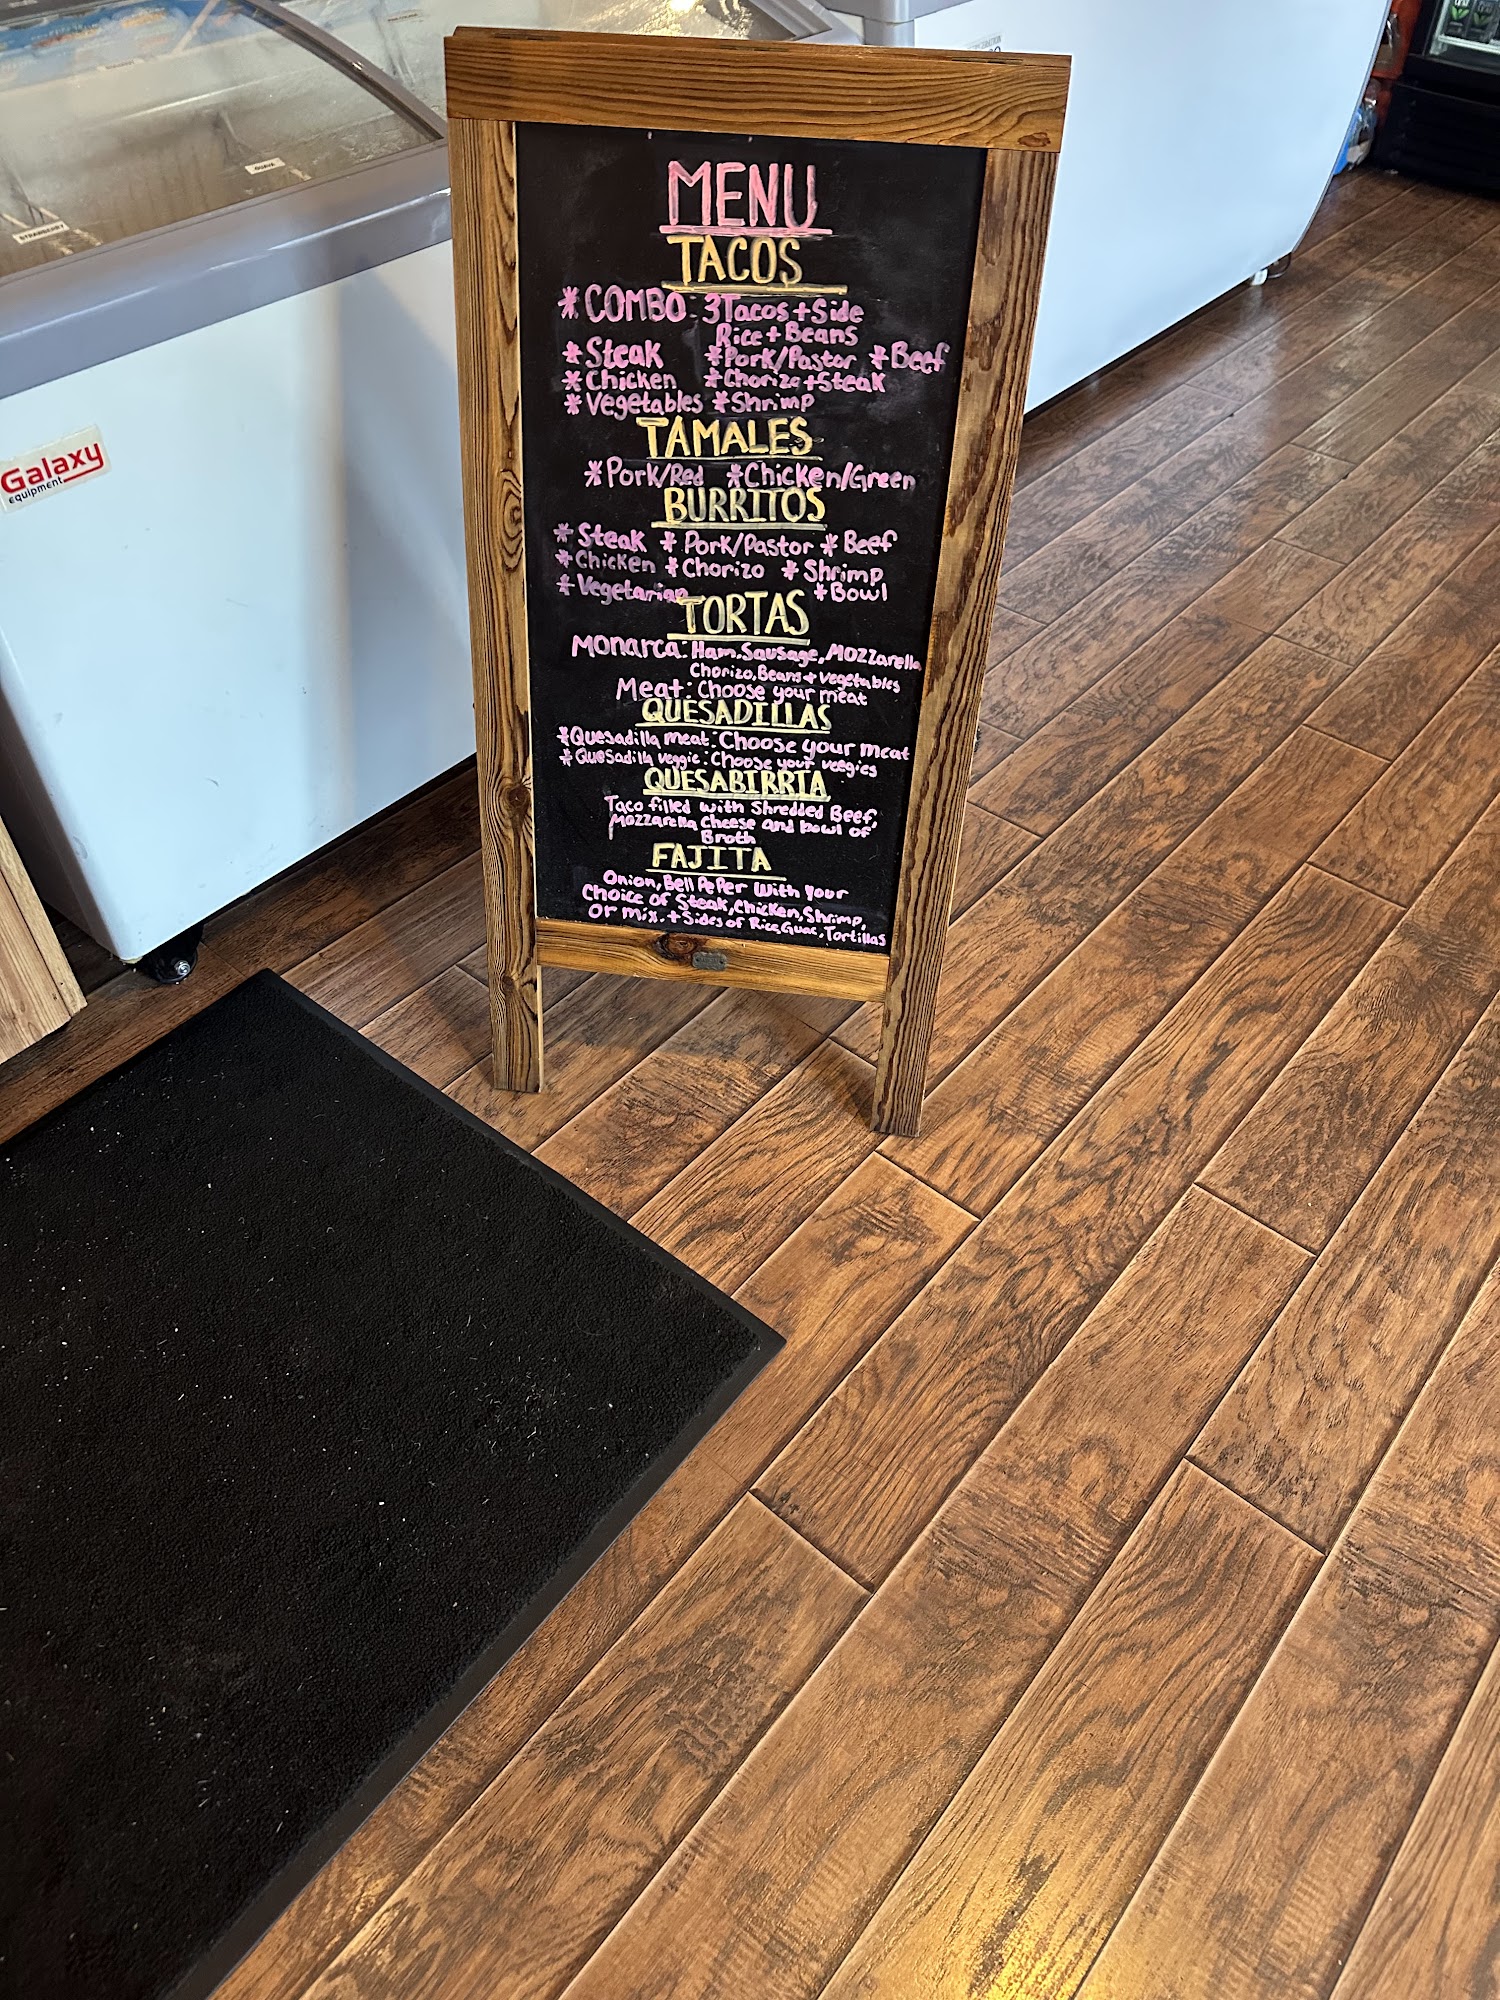 MENU
TACOS
*COMBO: 3Tacos+Side
Rice+Beans
*Steak *Pork/Pastor *Beef
*Chicken *Chorizo+Steak
*Vegetables *Shrimp
TAMALES
*Pork/Red *Chicken/Green
BURRITOS
*Steak *Pork/Pastor *Beef
*Chicken *Chorizo *Shrimp
*Vegetarian *Bowl
TORTAS
Monarca: Ham, Sausage, Mozzarella
Chorizo, Beans + Vegetables
Meat: Choose your meat
QUESADILLAS
*Quesadilla meat: Choose your meat
*Quesadilla veggie: Choose your veegies
QUESABIRRIA
Taco filled with Shredded Beef,
Mozzarella Cheese and bowl of
Broth
FAJITA
Onion, Bell PePer With Your
Choice of Steak, Chicken, Shrimp,
Or Mix. + Sides of Rice, Guac, Tortillas
GUAVA
STRAWBERRY
Galaxy
equipment